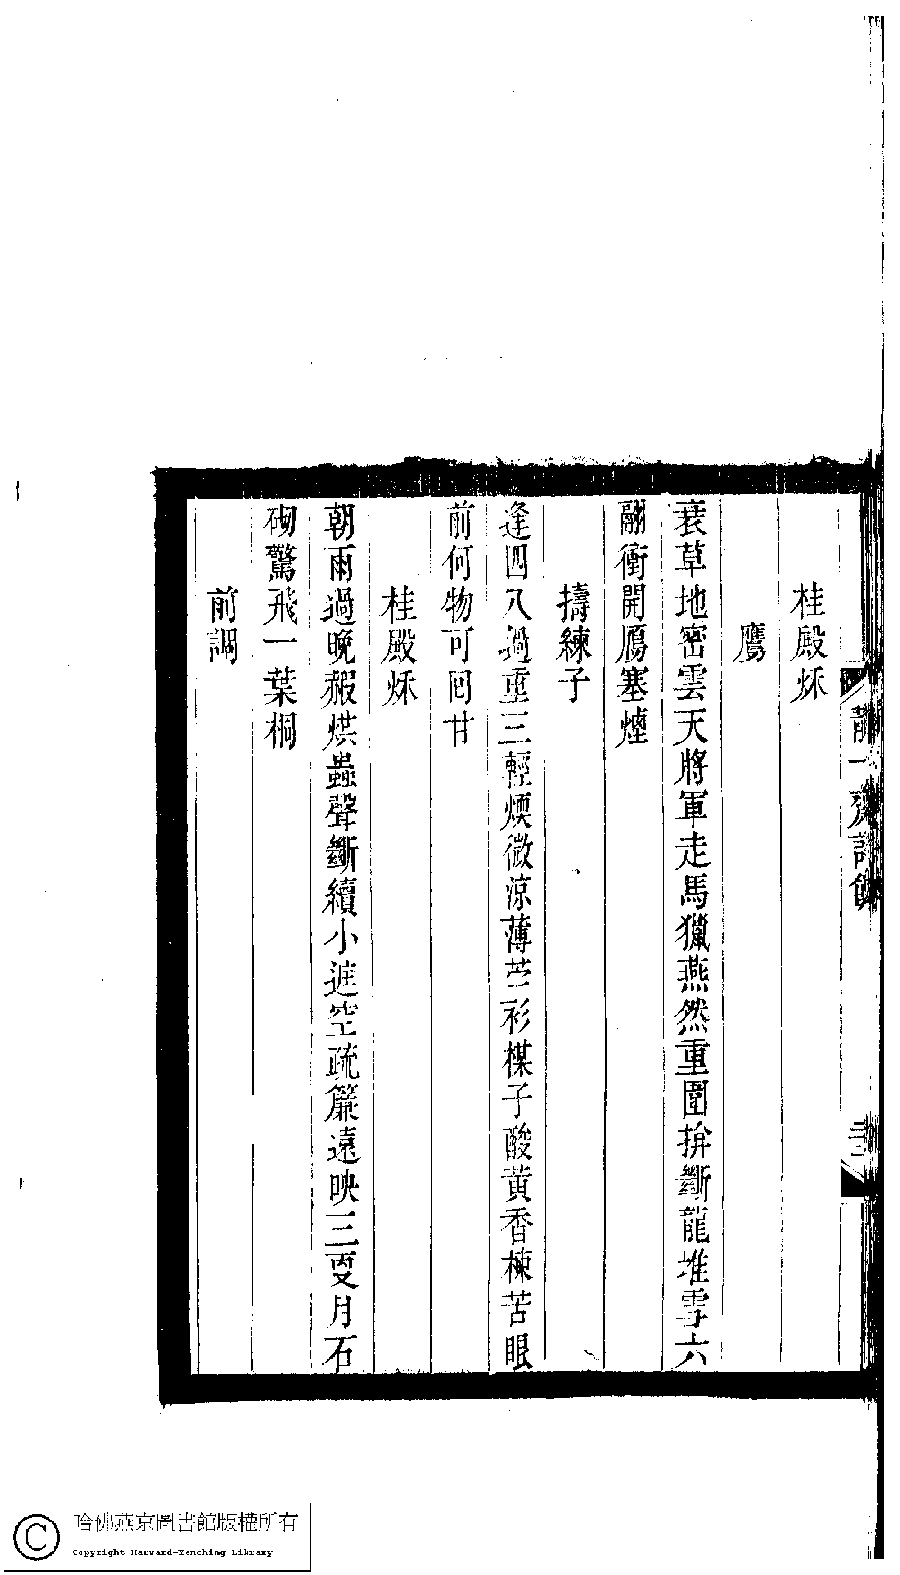 桂殿秌
鷹
衰草地密雲天將軍走馬獵燕然重圍拚斷龍堆雪六
翮衝開鴈塞煙
擣練子
逢四八過重三輕煗微涼薄苎衫楳子酸黃香楝苦眼
前何物可回甘
桂殿秌
朝雨過晚赮烘蟲聲斷續小遮空疏簾遠映三叓月石
砌驚飛一葉桐
前調
哈佛燕京圖書館版權所有
Copyright Harvard-Yenching Library